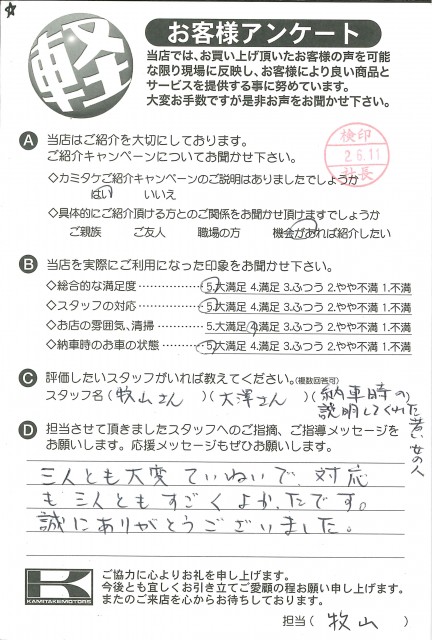 軽
お客様アンケート
当店では、お買い上げ頂いたお客様の声を可能
な限り現場に反映し、お客様により良い商品と
サービスを提供する事に努めています。
大変お手数ですが是非お声をお聞かせ下さい。
A 当店はご紹介を大切にしております。
ご紹介キャンペーンについてお聞かせ下さい。
検印
26.11
社長
◇カミタケご紹介キャンペーンのご説明はありましたでしょうか
はい いいえ
◇具体的にご紹介頂ける方とのご関係をお聞かせ頂けますでしょうか
ご親族 ご友人 職場の方 機会があれば紹介したい
B 当店を実際にご利用になった印象をお聞かせ下さい。
◇総合的な満足度……………5.大満足 4.満足 3.ふつう 2.やや不満 1.不満
◇スタッフの対応……………5.大満足 4.満足 3.ふつう 2.やや不満 1.不満
◇お店の雰囲気、清掃…………5.大満足 4.満足 3.ふつう 2.やや不満 1.不満
◇納車時のお車の状態…………5.大満足 4.満足 3.ふつう 2.やや不満 1.不満
C 評価したいスタッフがいれば教えてください。(複数回答可)
スタッフ名(牧山さん)(大澤さん)(納車時の
説明してくれた
若い女の人
D 担当させて頂きましたスタッフへのご指摘、ご指導メッセージを
お願いします。応援メッセージもぜひお願いします。
三人とも大変ていねいで、対応
も三人ともすごくよかったです。
誠にありがとうございました。
K
KAMITAKEMOTORS
ご協力に心よりお礼を申し上げます。
今後とも宜しくお引き立てご愛顧の程お願い申し上げます。
またのご来店を心からお待ちしております。
担当(牧山)